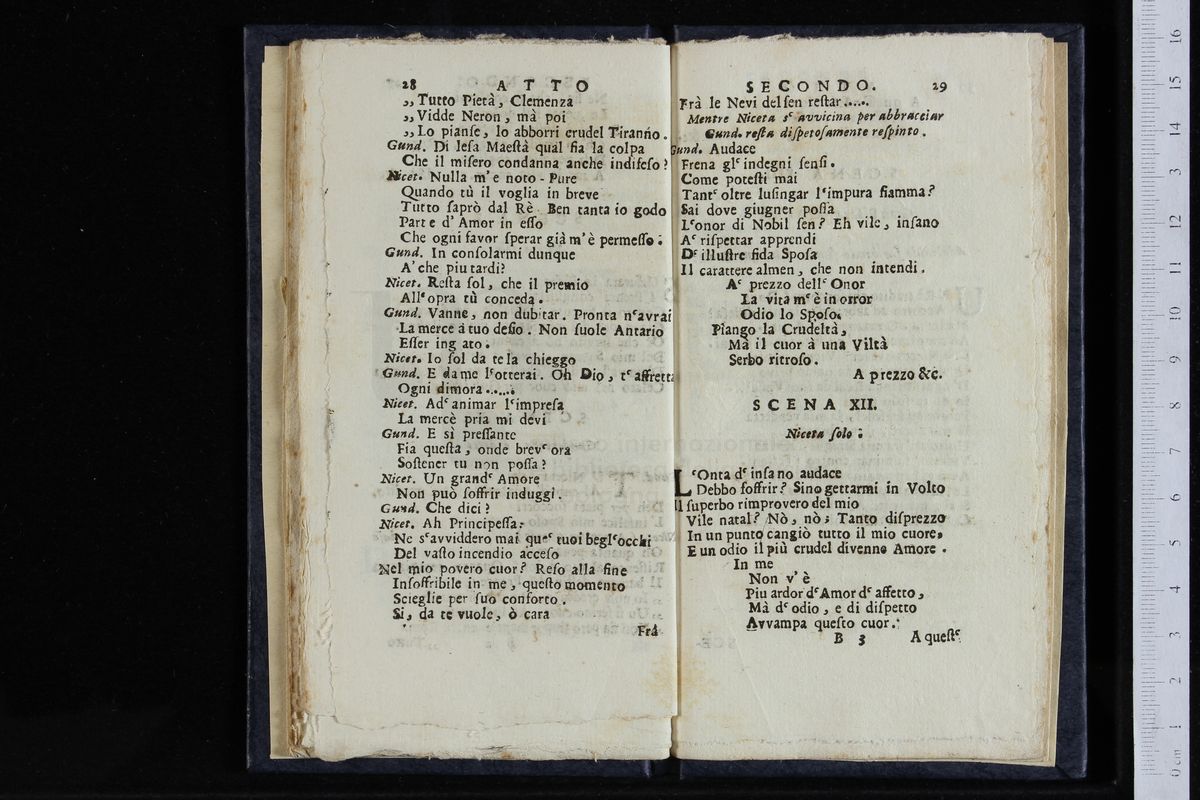 28 ATTO
„Tutto Pietà, Clemenza
„Vidde Neron, mà poi
„Lo pianſe, lo abborri crudel Tiranno.
Gund. Di leſa Maeſtà qual ſia la colpa
Che il miſero condanna anche indifeſo?
Nicet. Nulla m'e noto - Pure
Quando tù il voglia in breve
Tutto ſaprò dal Rè. Ben tanta io godo
Parte d'Amor in eſſo
Che ogni favor ſperar già m'è permeſſo.
Gund. In conſolarmi dunque
A'che piu tardi?
Nicet. Reſta ſol, che il premio
All'opra tù conceda.
Gund. Vanne, non dubitar. Pronta n'avrai
La merce à tuo deſio. Non ſuole Antario
Eſſer ing ato.
Nicet. Io ſol da te la chieggo
Gund. E da me l'otterai. Oh Dio, t'affretta
Ogni dimora......
Nicet. Ad'animar l'impreſa
La mercè pria mi devi
Gund. E sì preſſante
Fia queſta, onde brev'ora
Soſtener tu non poſſa?
Nicet. Un grand'Amore
Non può ſoffrir induggi.
Gund. Che dici?
Nicet. Ah Principeſſa.
Ne s'avviddero mai que' tuoi begl'occhi
Del vaſto incendio acceſo
Nel mio povero cuor? Reſo alla fine
Inſoffribile in me, queſto momento
Scieglie per ſuo conforto.
Si, da te vuole, ò cara
Frá
SECONDO. 29
Frà le Nevi del ſen reſtar......
Mentre Niceta s'avvicina per abbracciar
Gund. reſta diſpetoſamente reſpinto.
Gund. Audace
Frena gl'indegni ſenſi.
Come poteſti mai
Tant'oltre luſingar l'impura fiamma?
Sai dove giugner poſſa
L'onor di Nobil ſen? Eh vile, inſano
A'riſpettar apprendi
D'illuſtre fida Spoſa
Il carattere almen, che non intendi.
A'prezzo dell'Onor
La vita m'è in orror
Odio lo Spoſo.
Piango la Crudeltà,
Mà il cuor à una Viltà
Serbo ritroſo.
A prezzo &c.
SCENA XII.
Niceta ſolo.
L'Onta d'inſano audace
Debbo ſoffrir? Sino gettarmi in Volto
Il ſuperbo rimprovero del mio
Vile natal? Nò, nò; Tanto diſprezzo
In un punto cangiò tutto il mio cuore,
E un odio il più crudel divenne Amore.
In me
Non v'è
Piu ardor d'Amor d'affetto,
Mà d'odio, e di diſpetto
Avvampa queſto cuor.
B 3 A queſt'